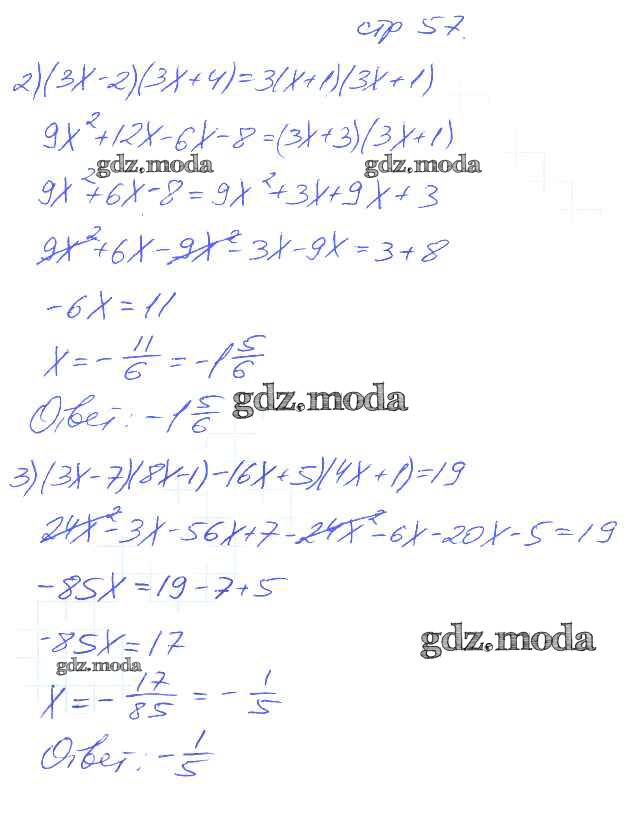 стр 57.
2) (3x-2)(3x+4)=3(x+1)(3x+1)
9x²+12x-6x-8=(3x+3)(3x+1)
gdz.moda gdz.moda
9x²+6x-8=9x²+3x+9x+3
9x²+6x-9x²-3x-9x=3+8
-6x=11
x=-11/6=-1 5/6
Ответ: -1 5/6
gdz.moda
3) (3x-7)(8x-1)-(6x+5)(4x+1)=19
24x²-3x-56x+7-24x²-6x-20x-5=19
-85x=19-7+5
-85x=17
gdz.moda
gdz.moda
x=-17/85=-1/5
Ответ: -1/5